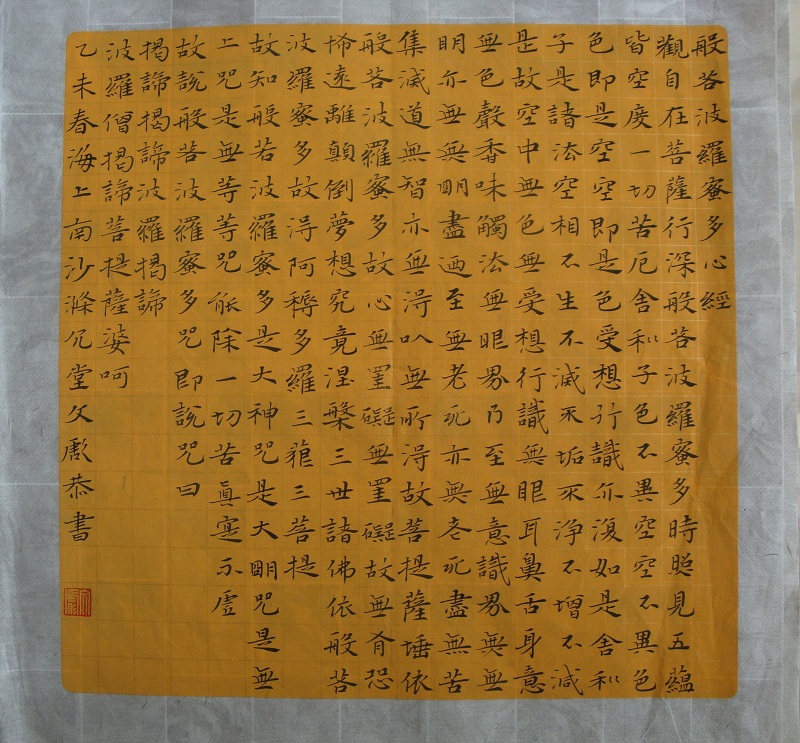 般若波羅蜜多心經
觀自在菩薩行深般若波羅蜜多時照見五蘊
皆空度一切苦厄舍利子色不異空空不異色
色即是空空即是色受想行識亦復如是舍利
子是諸法空相不生不滅不垢不淨不增不減
是故空中無色無受想行識無眼耳鼻舌身意
無色聲香味觸法無眼界乃至無意識界無無
明亦無無明盡迺至無老死亦無老死盡無苦
集滅道無智亦無得以無所得故菩提薩埵依
般若波羅蜜多故心無罣礙無罣礙故無有恐
怖遠離顛倒夢想究竟涅槃三世諸佛依般若
波羅蜜多故得阿耨多羅三藐三菩提
故知般若波羅蜜多是大神咒是大明咒是無
上咒是無等等咒能除一切苦真實不虛
故說般若波羅蜜多咒即說咒曰
揭諦揭諦波羅揭諦
波羅僧揭諦菩提薩婆呵
乙未春海上南沙滌凡堂文恭書